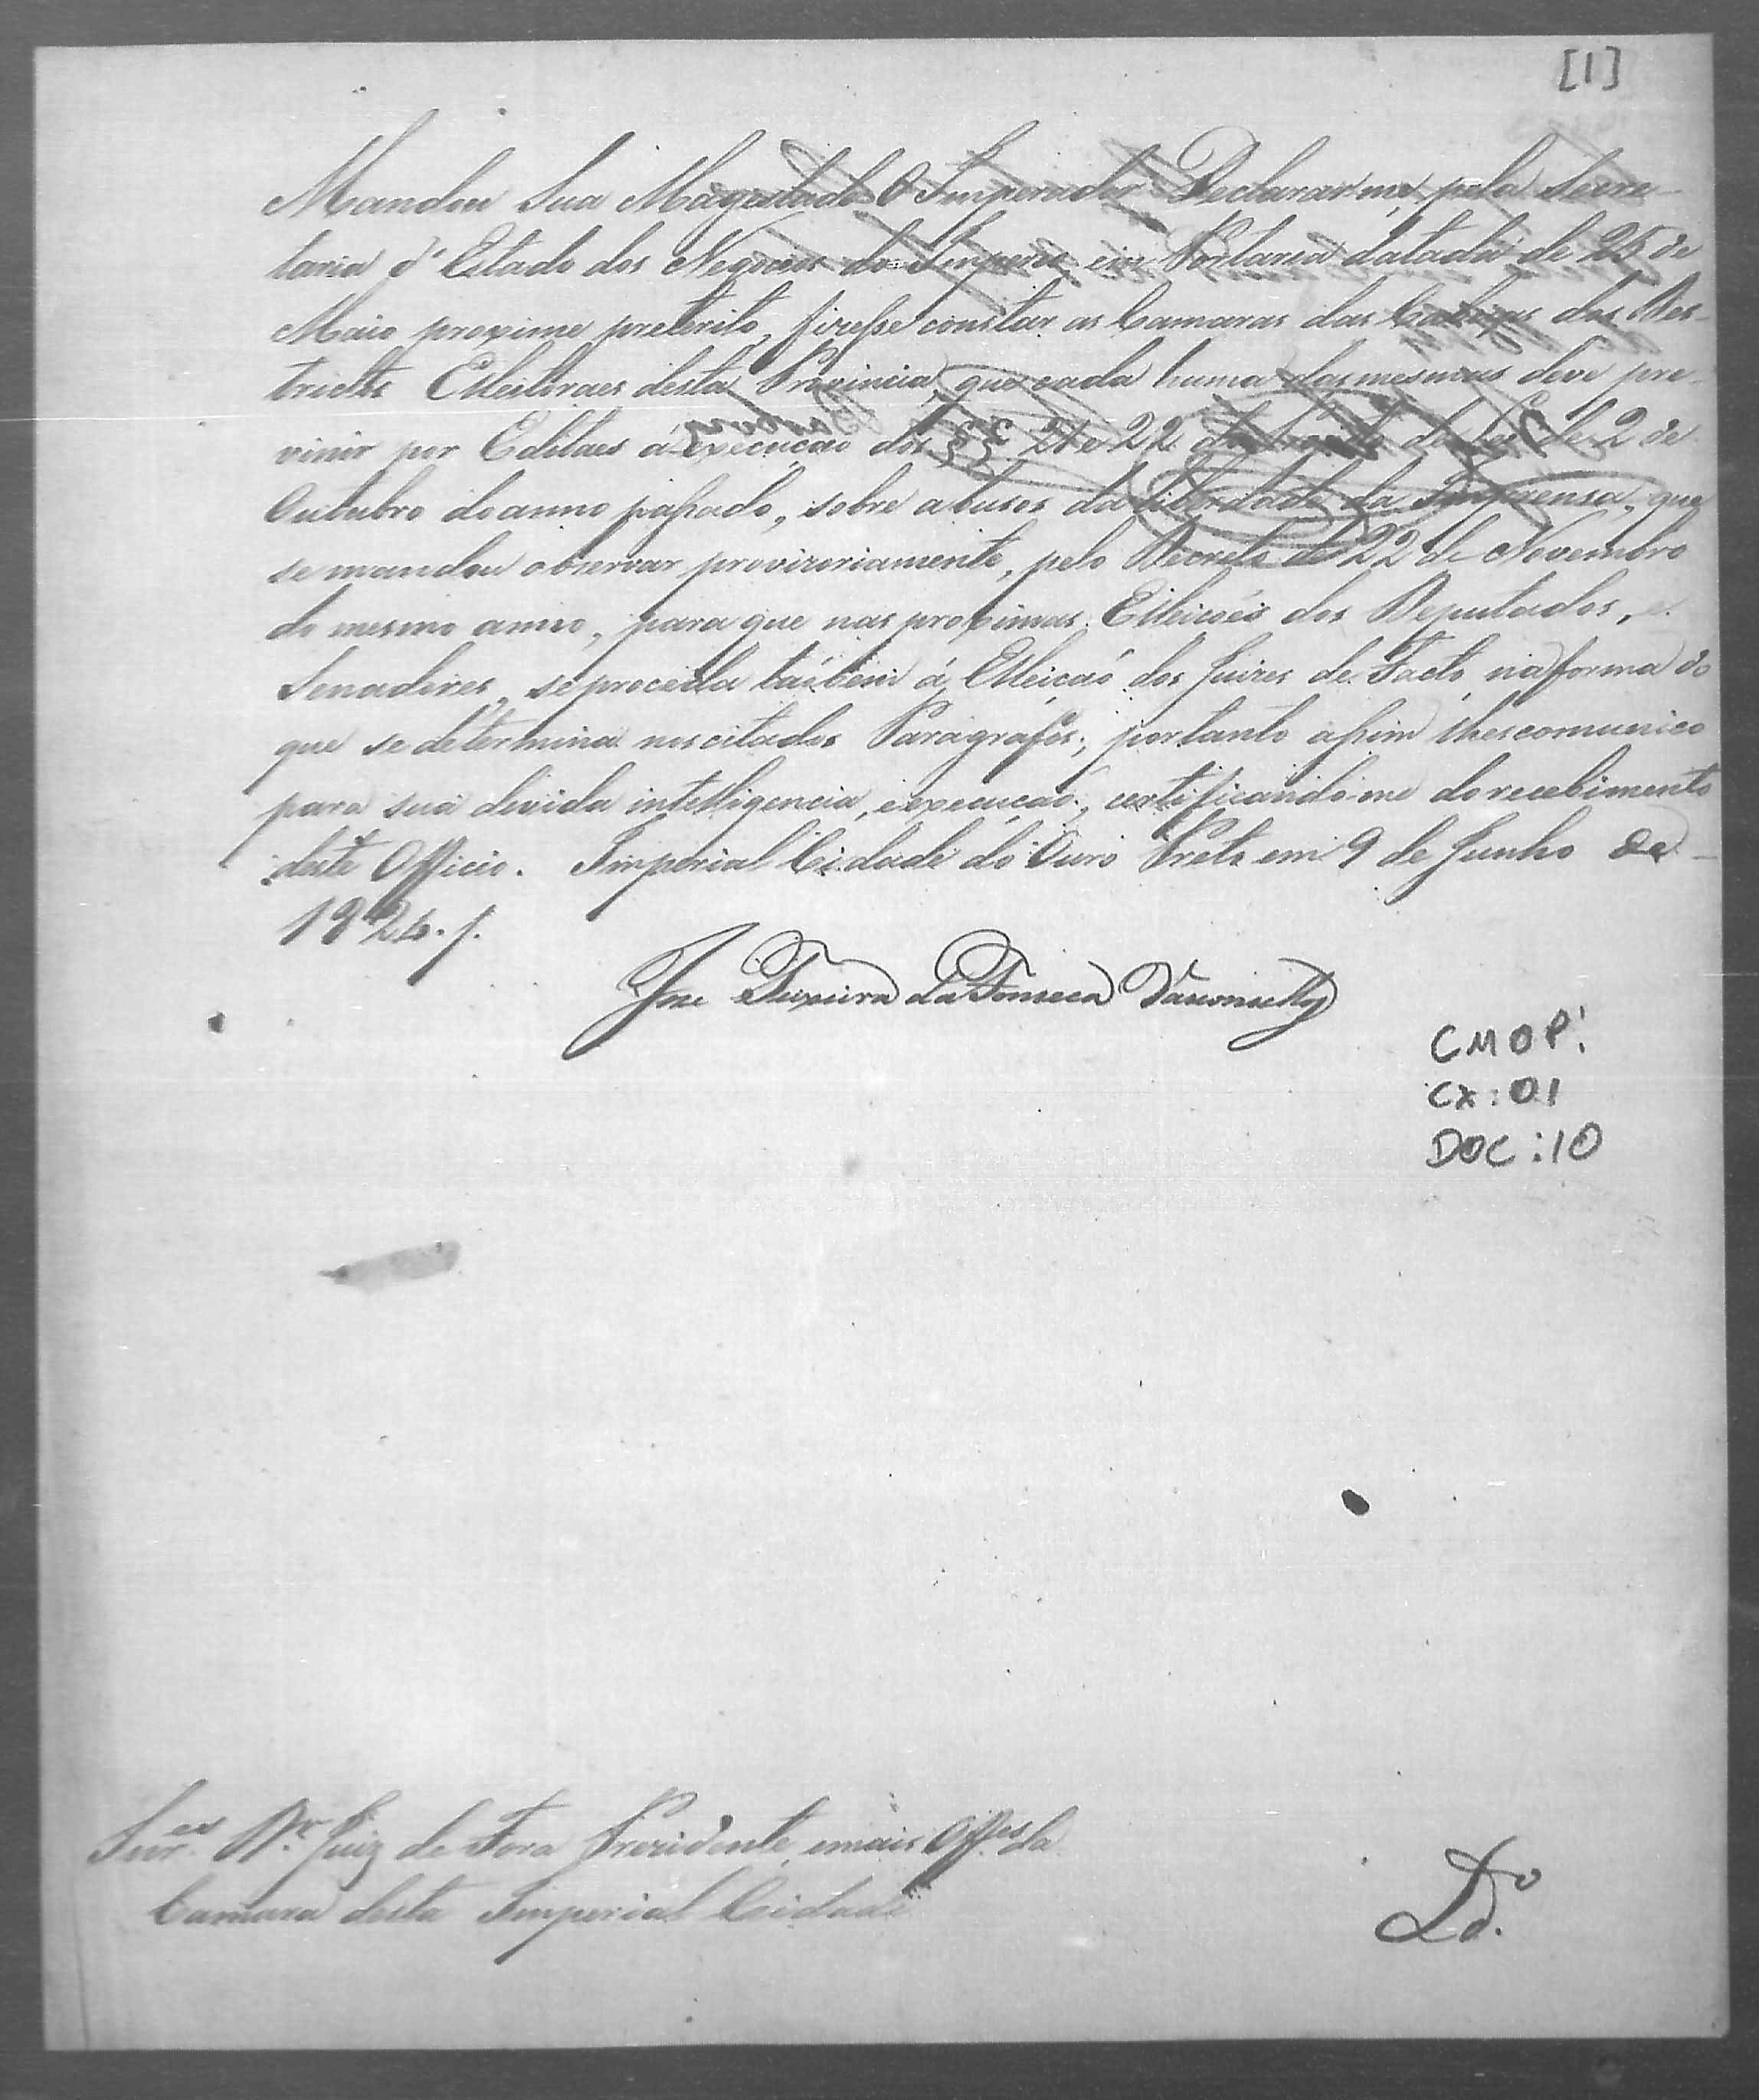 [1]
Mandou Sua Magestade O Imperador Declararme, pela Secre-
taria d'Estado dos Negocios do Imperio, em Portaria datada de 25 de
Maio proximo preterito, fizesse constar as Camaras das Cabeças dos Des-
trictos Elleitoraes desta Provincia, que cada huma das mesmas deve pre-
vinir por Editaes á execução dos §§ 21 e 22 de 2 de
Outubro do anno passado, sobre abusos da liberdade da Imprensa, que
se mandou observar provizoriamente, pelo Decreto de 22 de Novembro
do mesmo anno, para que nas proximas Elleicoẽs dos Deputados, e
Senadores, se proceda taõbem á Elleicaõ dos Juizes de Facto, na forma do
que se determina nos citados Paragrafos; portanto assim lhes comunico
para sua devida intelligencia, e execucaõ; certificando-me do recebimento
deste Officio. Imperial Cidade do Ouro Preto em 9 de Junho de
1824.
Joze Teixeira da Fonseca Vasconcellos
CMOP:
CX: 01
DOC: 10
Snr.es Dr. Juiz de Fora Prezidente, e mais Off.es da
Camara desta Imperial Cidade